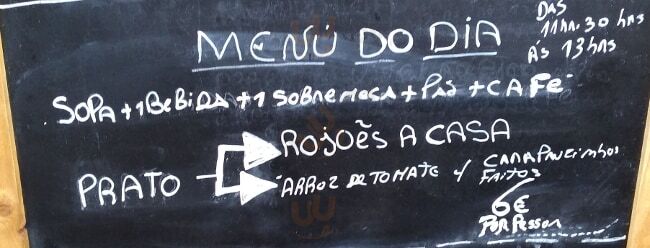 MENÚ DO DIA
DAS
11hn.30 hns
ÀS 13hns
SOPA + 1 BEBIDA + 1 SOBREMESA + PÃO + CAFÉ
PRATO
ROJOÊS A CASA
ARROZ DE TOMATE C/ CARAPAUZINHOS
FRITOS
6€
POR PESSOA